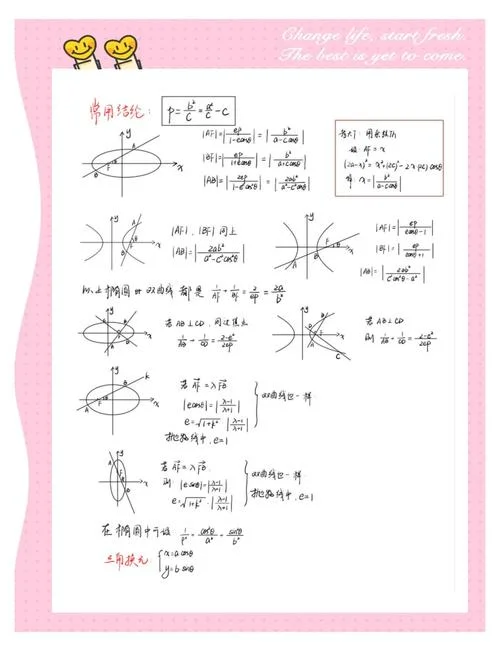 Change life, start fresh.
The best is yet to come.
常用结论: p=b²/c=a²/c-c
|AF|=|ep/1-ecosθ|=|b²/a-ccosθ|
|BF|=|ep/1+ecosθ|=|b²/a+ccosθ|
|AB|=|2ep/1-e²cos²θ|=|2ab²/a²-c²cos²θ|
用余弦公
设 AF=x
(2a-x)²=x²+(2c)²-2·x·(2c)cosθ
x=|b²/a-ccosθ|
|AF|, |BF| 同上
|AB|=|2ab²/a²-c²cos²θ|
|AF|=|ep/ecosθ-1|
|BF|=|ep/ecosθ+1|
|AB|=|2ab²/c²cos²θ-a²|
以上椭圆 双曲线 都是 1/AF+1/BF=2/ep=2a/b²
若 AB⊥CD, 同过焦点
1/AB+1/CD=2-e²/2ep
若 AB⊥CD
则 1/AB+1/CD=2-e²/2ep
若 AF=λFB
|ecosθ|=|λ-1/λ+1|
e=√1+k²·|λ-1/λ+1|
双曲线也一样
抛物线中, e=1
若 AF=λFB
则 |esinθ|=|λ-1/λ+1|
e=√1+1/k²·|λ-1/λ+1|
双曲线也一样
抛物线中, e=1
在椭圆中可设 1/r²=cos²θ/a²+sin²θ/b²
三角换元 x=acosθ
y=bsinθ